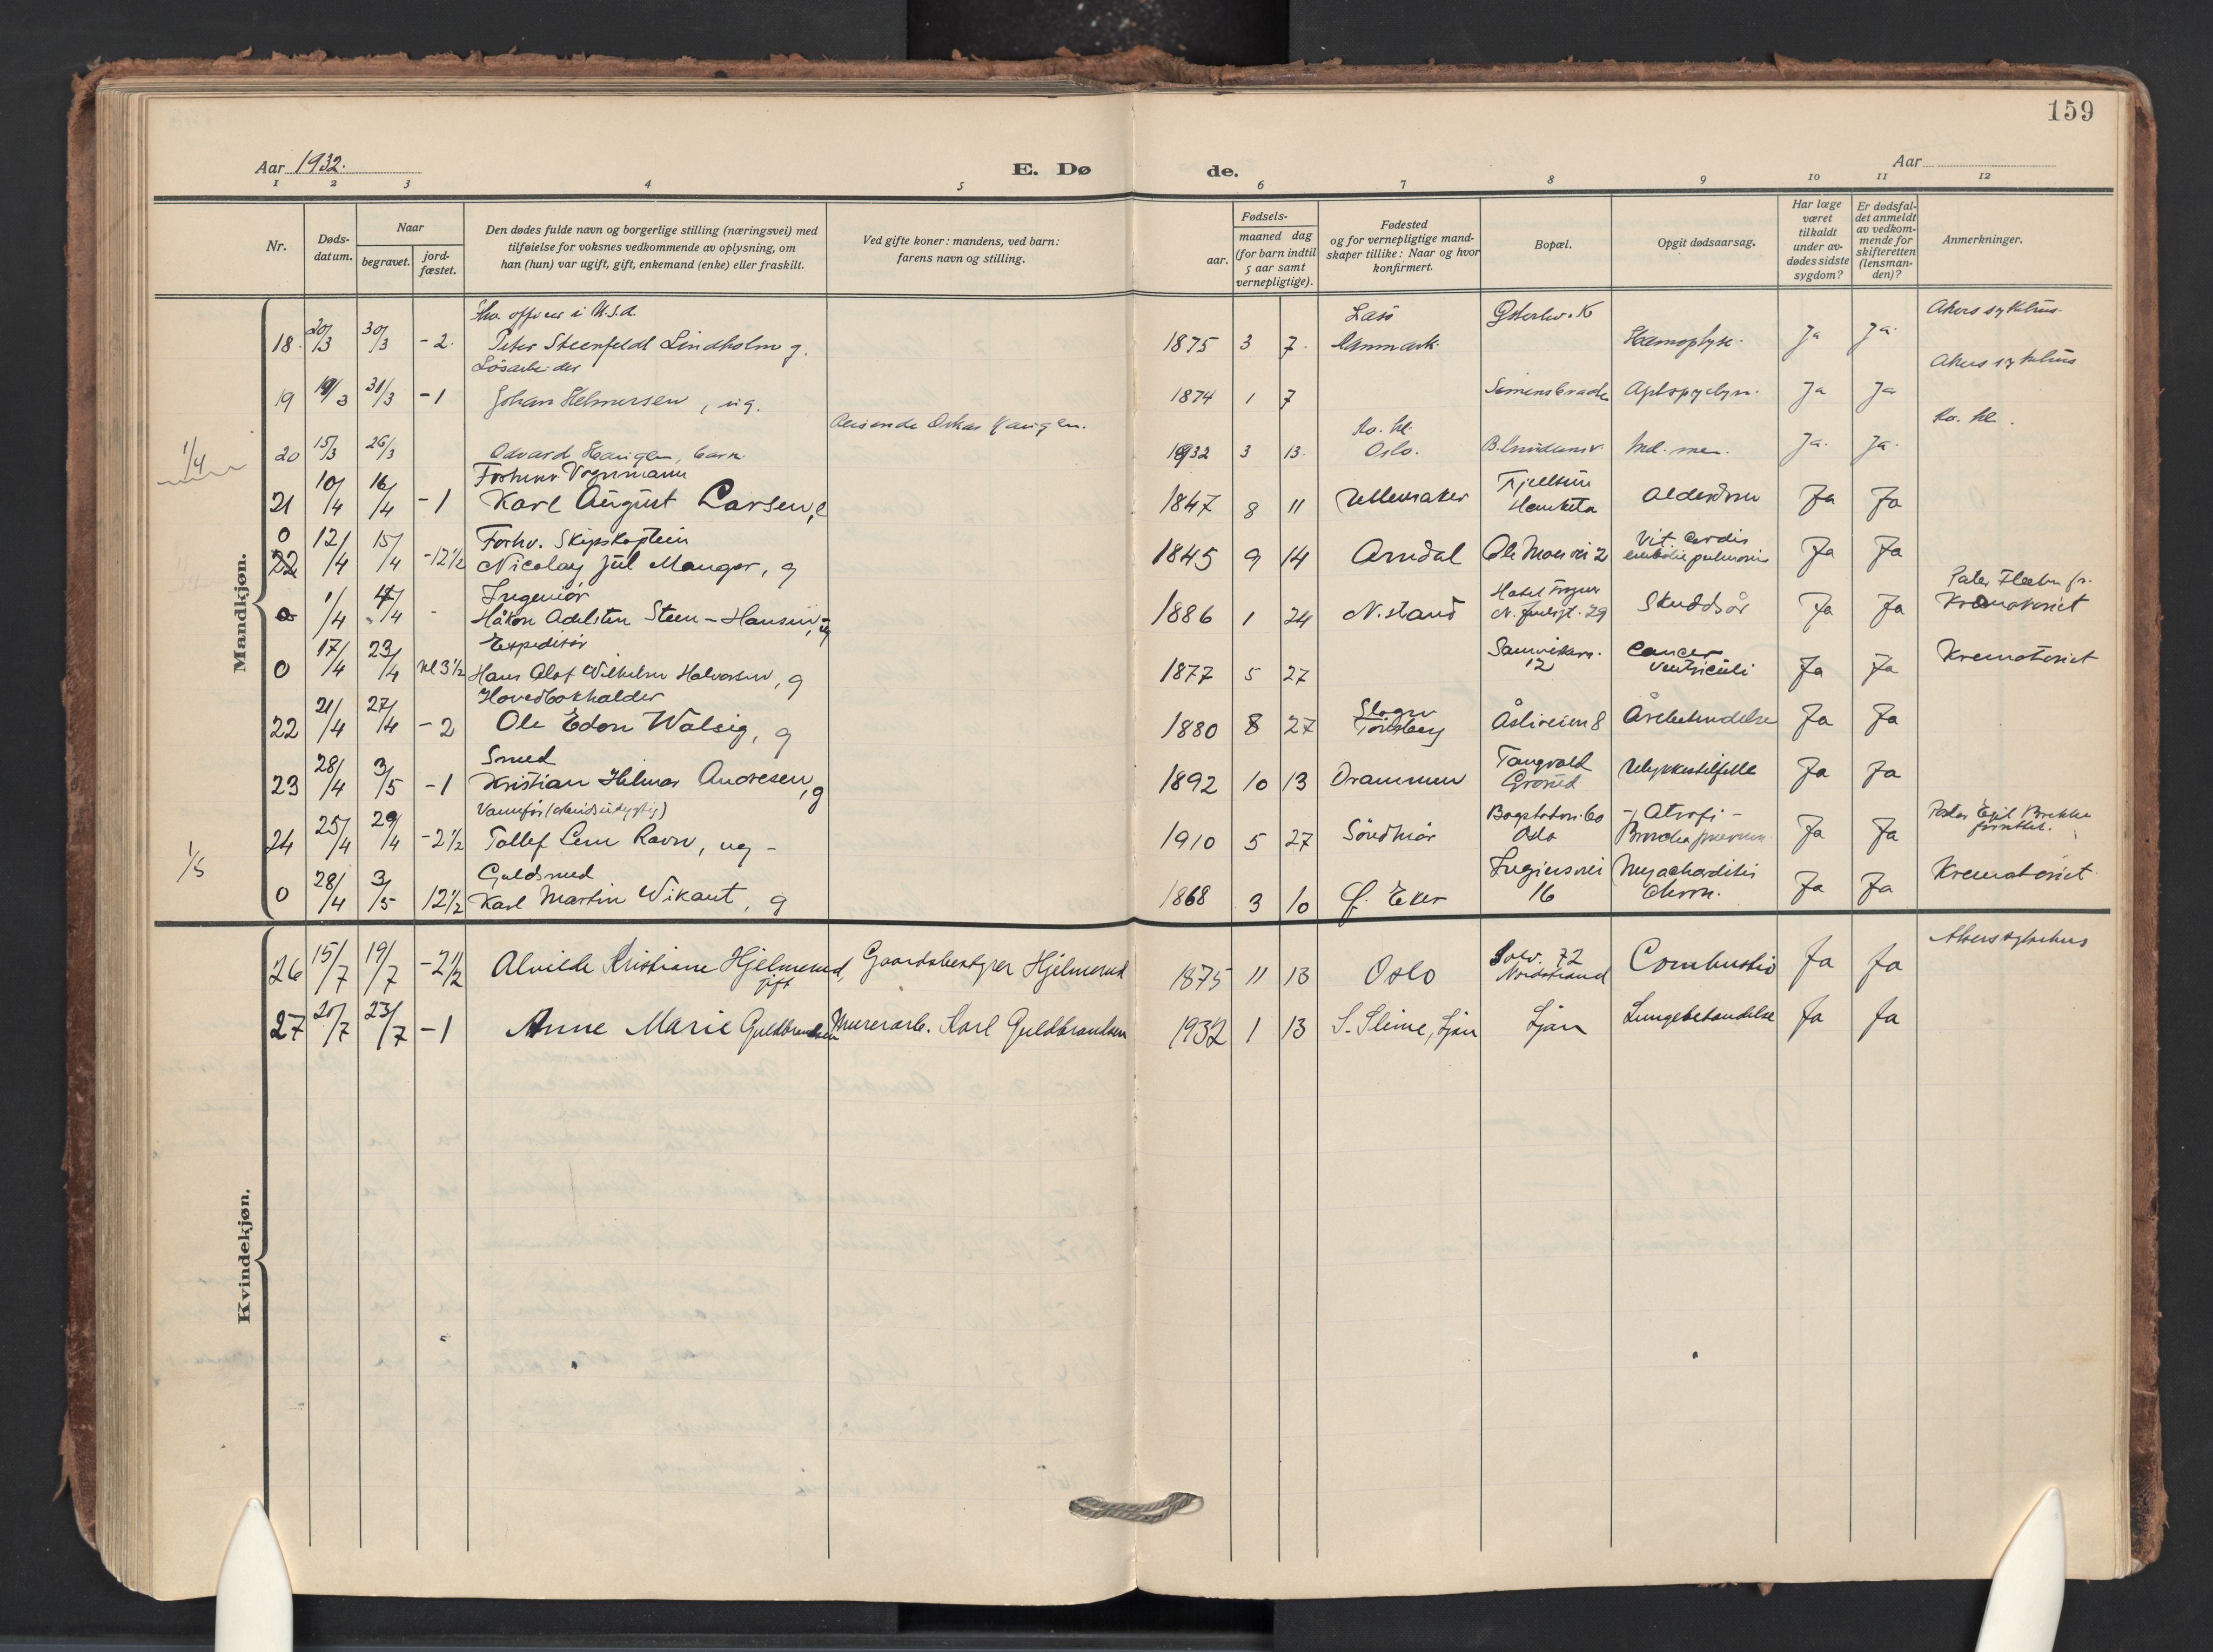 159
Aar 1932.
E. Dø
de.
Aar
1 2 3 4 5 6 7 8 9 10 11 12
Nr.
Døds-datum.
Naar
begravet.
jord-fæstet.
Den dødes fulde navn og borgerlige stilling (næringsvei) med
tilføielse for voksnes vedkommende av oplysning, om
han (hun) var ugift, gift, enkemand (enke) eller fraskilt.
Ved gifte koner: mandens, ved barn:
farens navn og stilling.
Fødsels-
aar.
maaned dag
(for barn indtil
5 aar samt
vernepligtige).
Fødested
og for vernepligtige mand-
skaper tillike: Naar og hvor
konfirmert.
Bopæl.
Opgit dødsaarsag.
Har læge
været
tilkaldt
under av-
dødes sidste
sygdom?
Er dødsfal-
det anmeldt
av vedkom-
mende for
skifteretten
(lensman-
den)?
Anmerkninger.
Mandkjøn.
fhv. officer i U.S.A. Akers sykehus.
18. 20/3 30/3 - 2. Peter Steenfeldt Lindholm g. 1875 3 7. Danmark. Hæmoptyse. Ja Ja.
Løsarbeider Akers sykehus
19 19/3 31/3 - 1 Johan Helmersen, ug. 1874 1 7 Ja Ja
Reisende Oskar Haugen. Kv. kl.
1/4 20 15/3 26/3 Edvard Haugen, barn. 1932 3 13. Oslo. Ja. Ja.
Forhenv. Vognmann
21 10/4 16/4 - 1 Karl August Larsen, e 1847 8 11 Ullensaker Alderdom Ja Ja
Forhv. Skipskaptein
0 22 12/4 15/4 - 12 1/2 Nicolay Jul Manger, g 1845 9 14 Arndal Ole Moes vei 2 Vit. cordis embolie pulmonis Ja Ja
Ingeniør
0 1/4 - Håkon Adelsten Steen-Hansen, ug 1886 1 24 N. stand Skuddsår Ja Ja Krematoriet
Expeditør
0 17/4 23/4 kl 3 1/2 Hans Olaf Wilhelm Halvorsen, g 1877 5 27 12 Cancer ventriculi Ja Ja Krematoriet
Hovedbokholder
22 21/4 27/4 - 2 Ole Edon Walsig, g 1880 8 27 Slagen Tönsberg Åsliveien 8 Ja Ja
Smed
23 28/4 3/5 - 1 Kristian Hilmar Andresen, g 1892 10 13 Drammen Tangvald Grorud Ulykkestilfelle Ja Ja
Vanfør (arbeidsudygtig)
24 25/4 29/4 - 2 1/2 Tollef Lem Ravn, ug - 1910 5 27 Søndmør Oslo - Atrofi - Ja Ja
Guldsmed
1/5 0 28/4 3/5 12 1/2 Karl Martin Wikant, g 1868 3 10 Ø. Eker 16 Myocharditis chron. Ja Ja Krematoriet
Kvindekjøn.
26 15/7 19/7 - 2 1/2 Alvilde Kristiane Hjelmerud, gift Gaardsbestyrer Hjelmerud 1875 11 13 Oslo Solv. 72 Nordstrand Combustio Ja Ja Akers sykehus
27 20/7 23/7 - 1 Anne Marie Guldbrandsen Murerarb. Karl Guldbrandsen 1932 1 13 Ljan Lungebetendelse Ja Ja